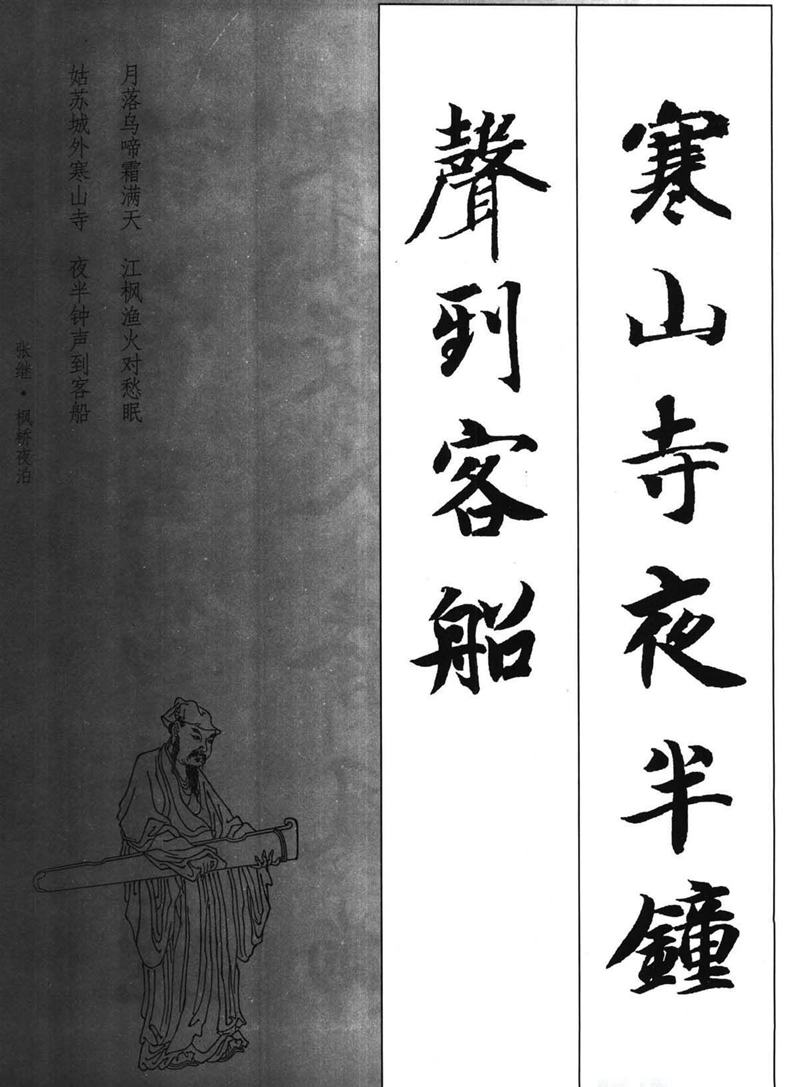 寒山寺夜半鐘
聲到客船
月落乌啼霜满天 江枫渔火对愁眠
姑苏城外寒山寺 夜半钟声到客船
张继·枫桥夜泊